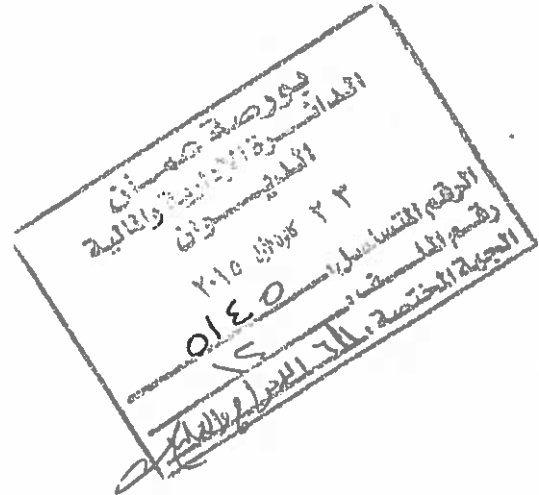 بورصة عمان
الدائرة الادارية والمالية
الديوان
٢٣ كانون الأول ٢٠١٥
الرقم المتسلسل: ٥١٤٥
رقم الملف:
الجهة المختصة: